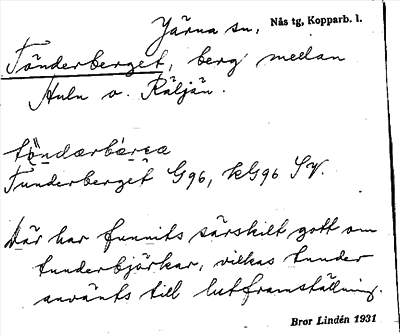 Järna sn, Nås tg, Kopparb. l.
Tönderberget, berg mellan
Huln o. Räljän.
töndǝrbärea
Tunderberget G96, kG96 SV.
Där har funnits särskilt gott om
tunderbjörkar, vilkas tunder
använts till lutframställning.
Bror Lindén 1931